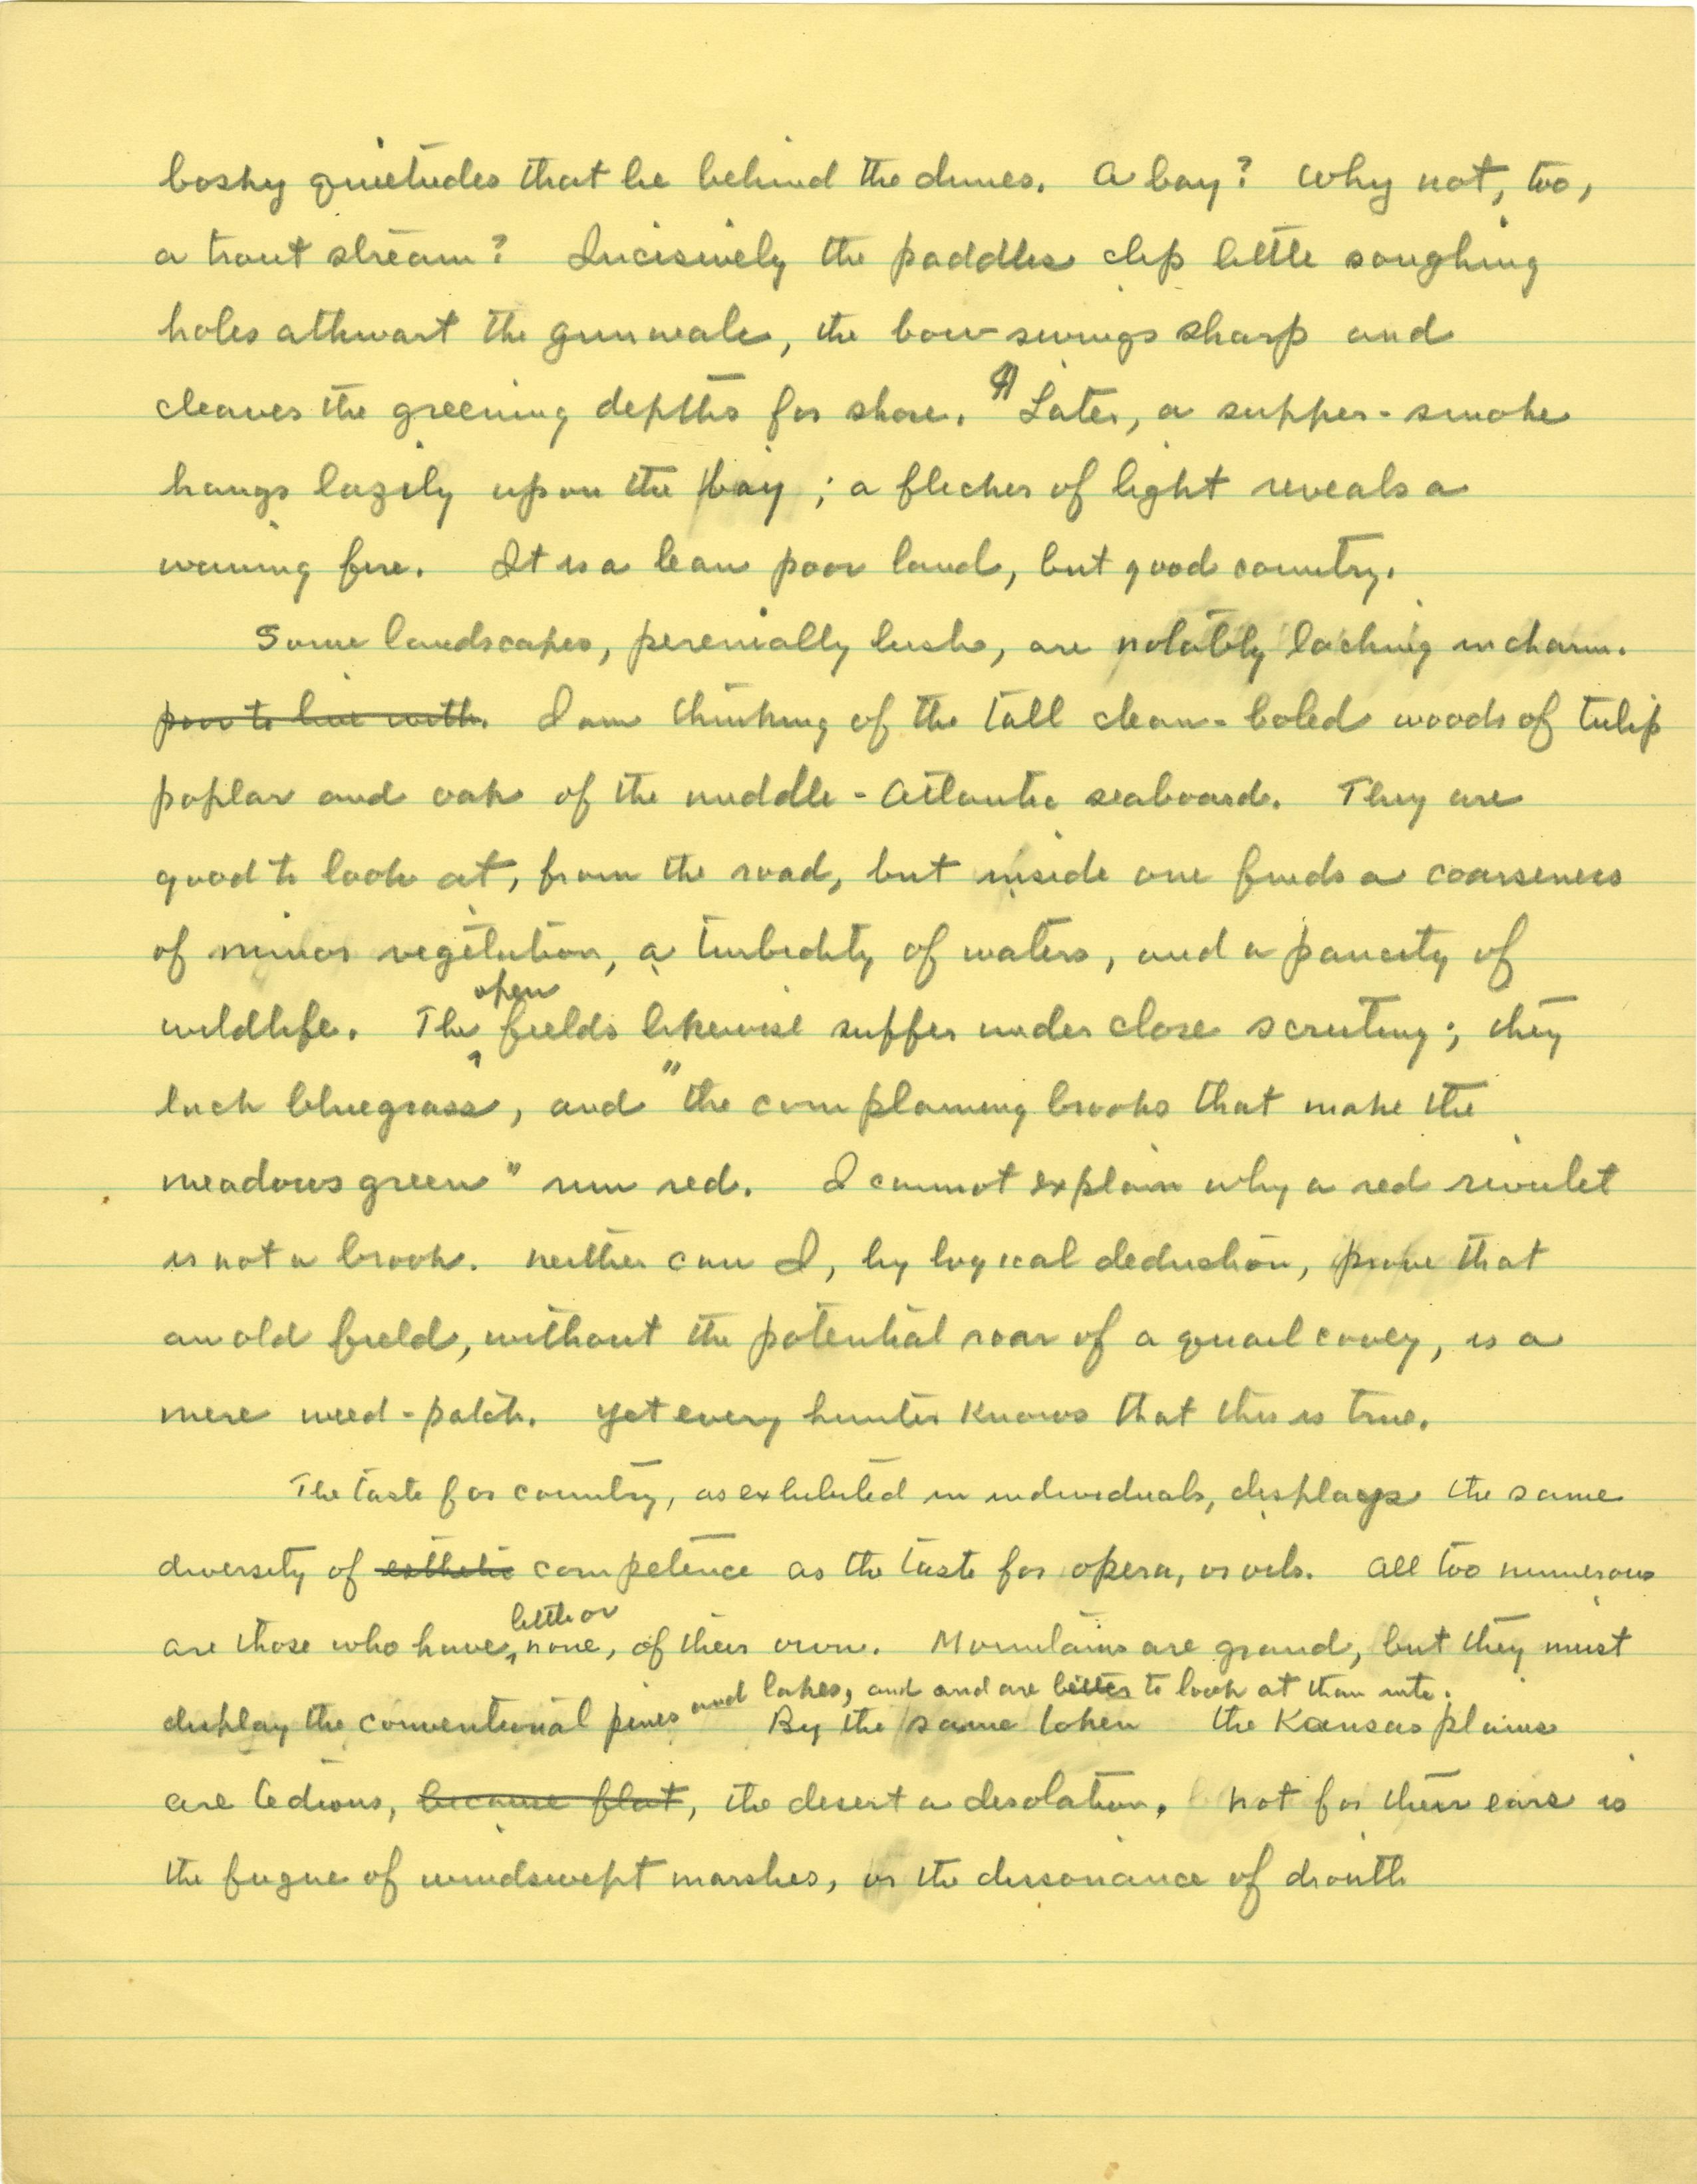 bosky quietudes that lie behind the dunes. A bay? Why not, too,
a trout stream? Incisively the paddles clip little soughing
holes athwart the gunwale, the bow swings sharp and
cleaves the greening depths for shore. ¶ Later, a supper-smoke
hangs lazily upon the bay; a flicker of light reveals a
waning fire. It is a lean poor land, but good country.
Some landscapes, perenially lush, are notably lacking in charm.
poor to live with. I am thinking of the tall clean-boled woods of tulip
poplar and oak of the middle-Atlantic seaboard. They are
good to look at, from the road, but inside one finds a coarseness
of minor vegetation, a turbidity of waters, and a paucity of
open
wildlife. The fields likewise suffer under close scrutiny; they
lack bluegrass, and "the complaining brooks that make the
meadows green" run red. I cannot explain why a red rivulet
is not a brook. Neither can I, by logical deduction, prove that
an old field, without the potential roar of a quail covey, is a
mere weed-patch. Yet every hunter knows that this is true.
The taste for country, as exhibited in individuals, displays the same
diversity of esthetic competence as the taste for opera, or oils. All too numerous
little or
are those who have none, of their own. Mountains are grand, but they must
and lakes, and and are better to look at than into.
display the conventional pines By the same token the Kansas plains
are tedious, because flat, the desert a desolation. Not for their ears is
the fugue of windswept marshes, or the dissonance of drouth